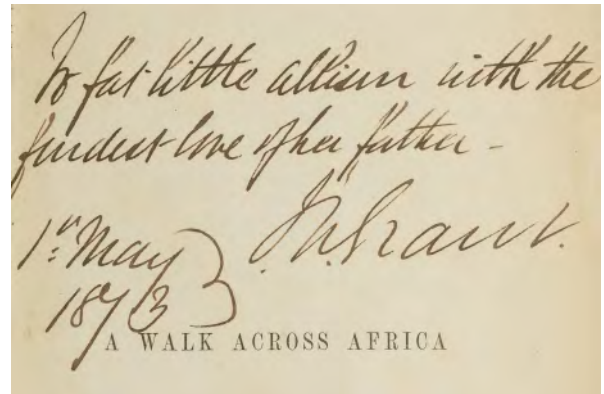 To fat little allison with the
fondest love of her father -
1st May
1873
J.A. Grant.
A WALK ACROSS AFRICA